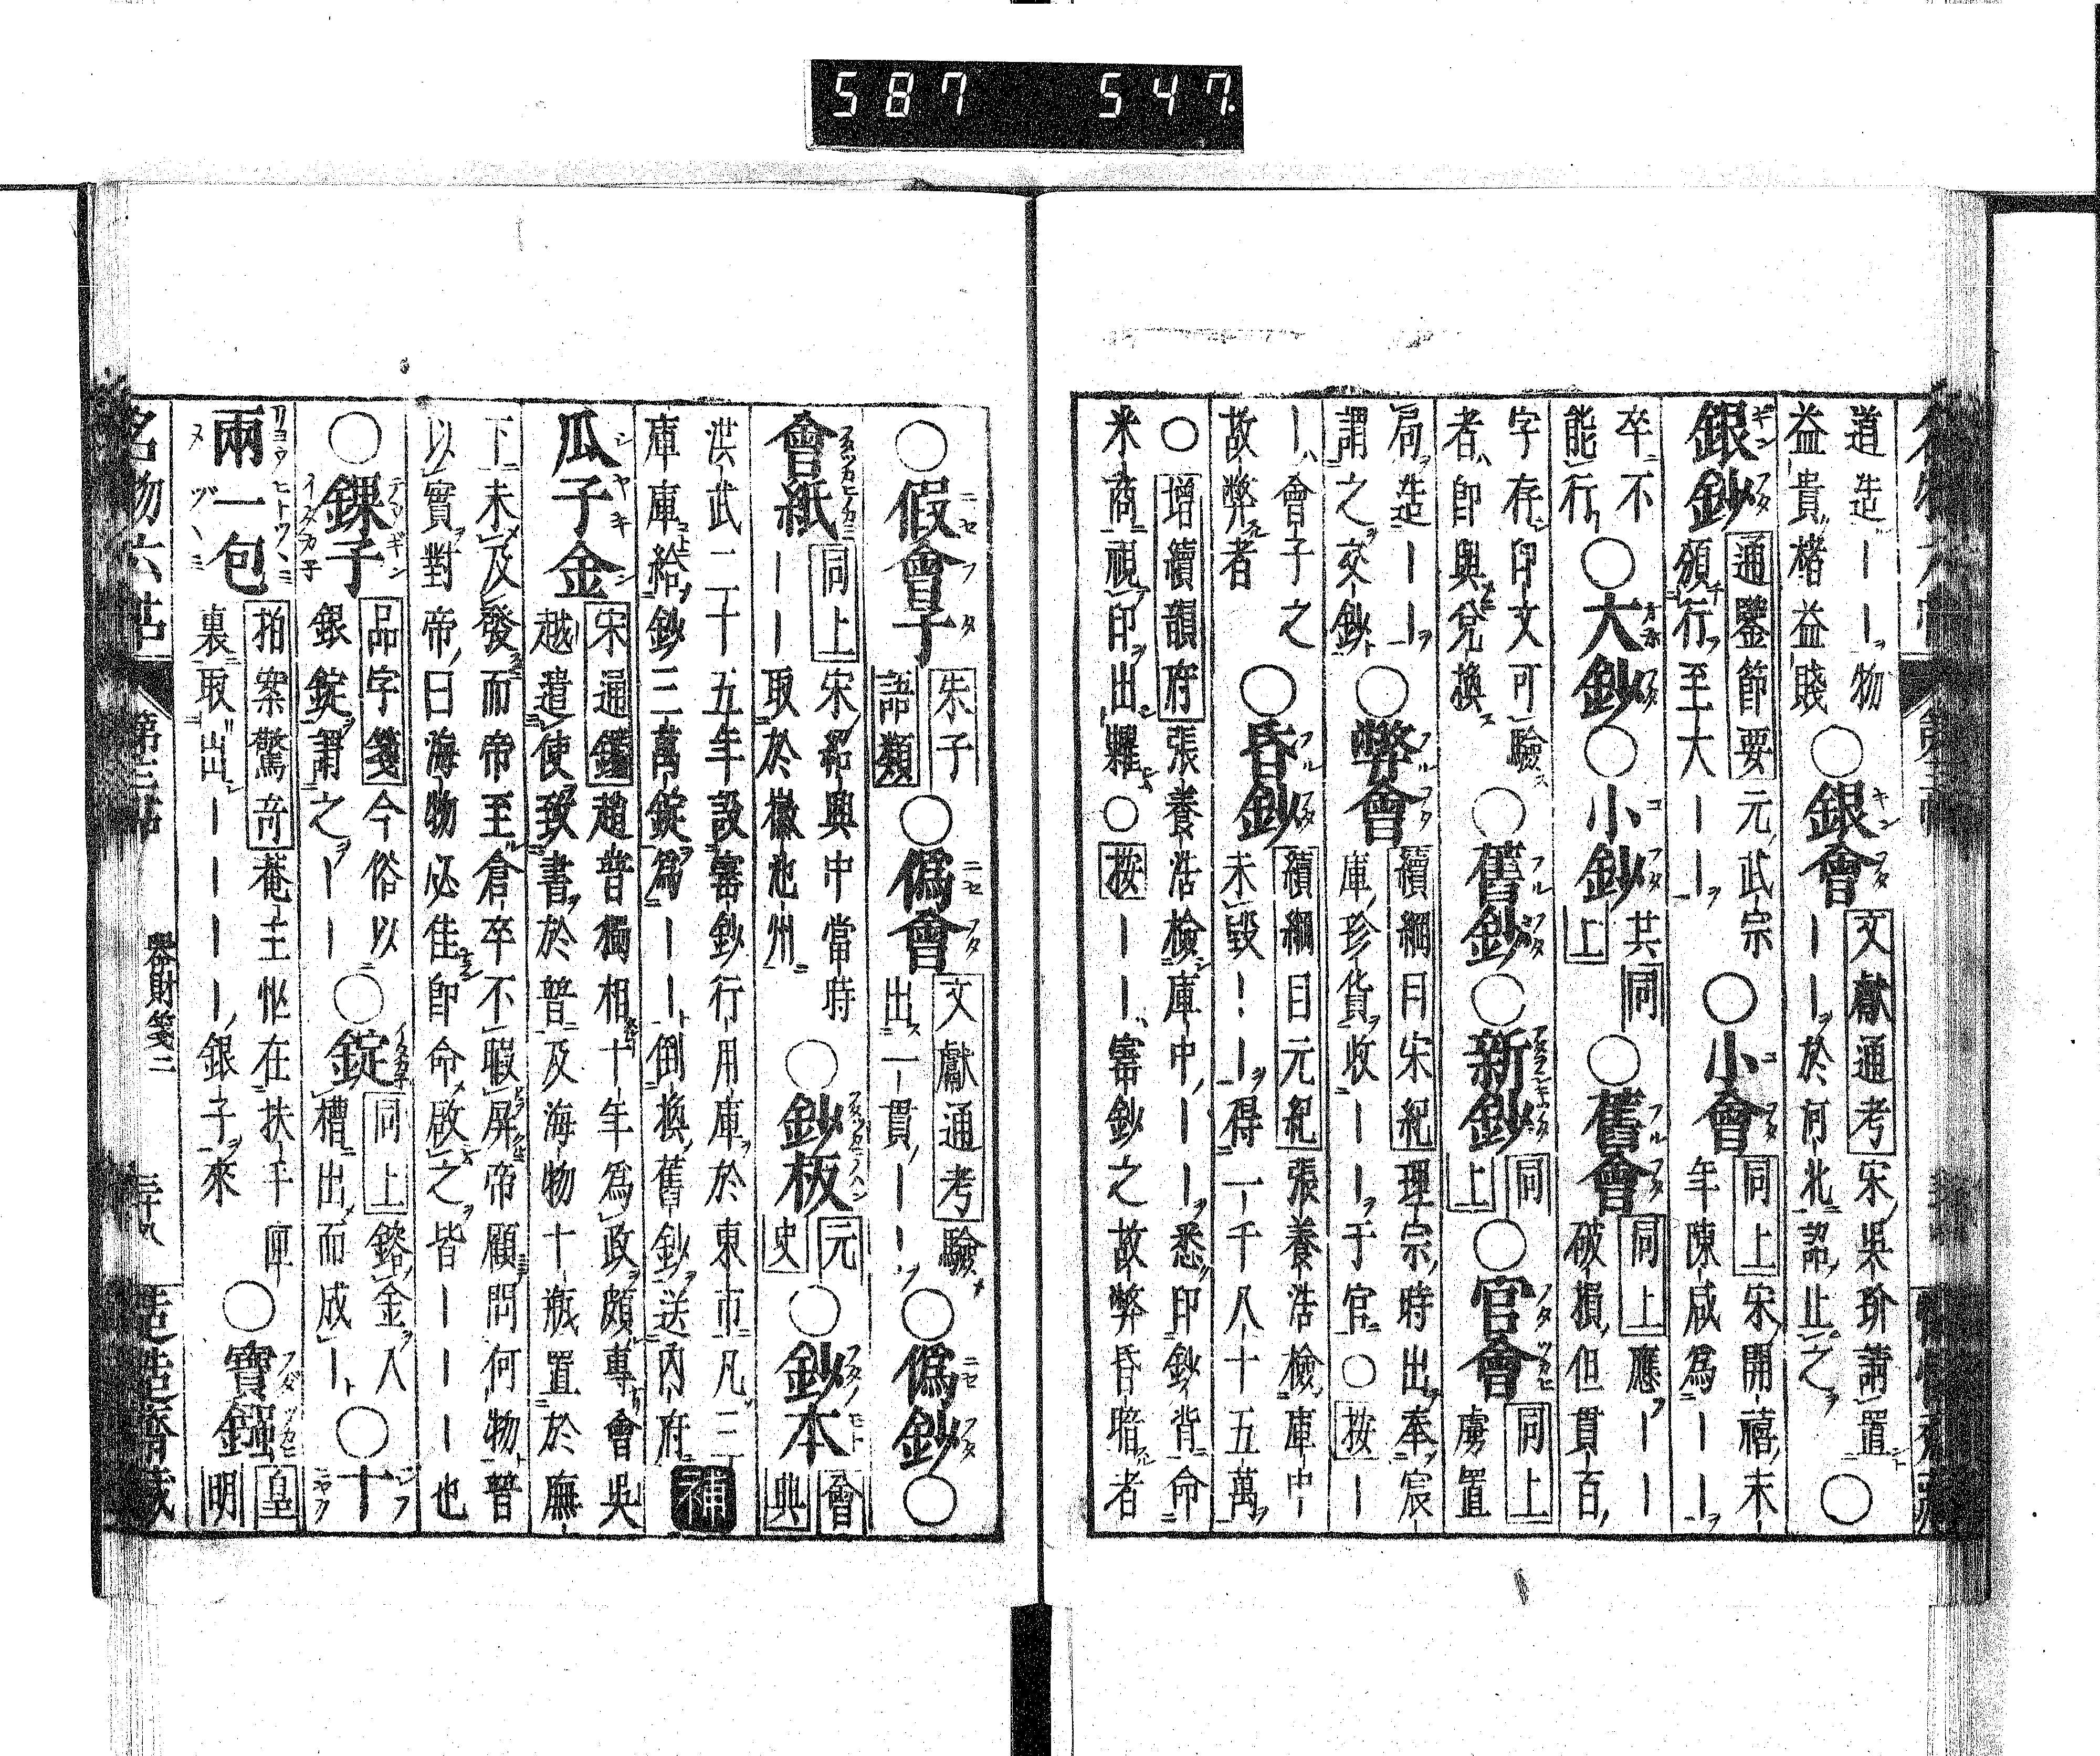 587 547.
道造｜｜物
益貴楮益賤○銀會文獻通考宋吳玠請置
｜｜於河北詔止之○
銀鈔通鑒節要元武宗
頒行至大｜｜○小會同上宋開禧末
年陳咸為｜｜
卒不
能行○大鈔○小鈔共同
上○舊會同上應｜｜
破損但貫百
字存印文可驗
者即與兌換○舊鈔○新鈔同
上○官會同上
虜置
局造｜｜
謂之交鈔○弊會續綱目宋紀理宗時出奉宸
庫珍貨收｜｜于官○按｜
｜會子之
故弊者○昏鈔續綱目元紀張養浩檢庫中
未毀｜｜得一千八十五萬
○增續韻府張養浩檢庫中｜｜悉印鈔背命
米商視印出糶○按｜｜審鈔之故弊昏暗者
○假會子朱子
語類○偽會文獻通考驗
出一貫｜｜○偽鈔○
會紙同上宋紹興中當時
｜｜取於徽池州○鈔板元
史○鈔本會
典
洪武二十五年設寶鈔行用庫於東市凡三
庫庫給鈔三萬錠為｜｜倒換舊鈔送內府補
瓜子金宋通鑑趙普獨相十年為政頗專會吳
越遣使致書於普及海物十瓶置於廡
下未及發而帝至倉卒不暇屏帝顧問何物普
以實對帝曰海物必佳即命啟之皆｜｜｜也
○錁子品字箋今俗以
銀錠謂之｜｜○錠同上鎔金入
槽出而成｜○十
兩一包拍案驚奇菴主忙在扶手匣
裏取出｜｜｜｜銀子來○寶鏹皇
明
名物六帖 第三帖 器財箋二